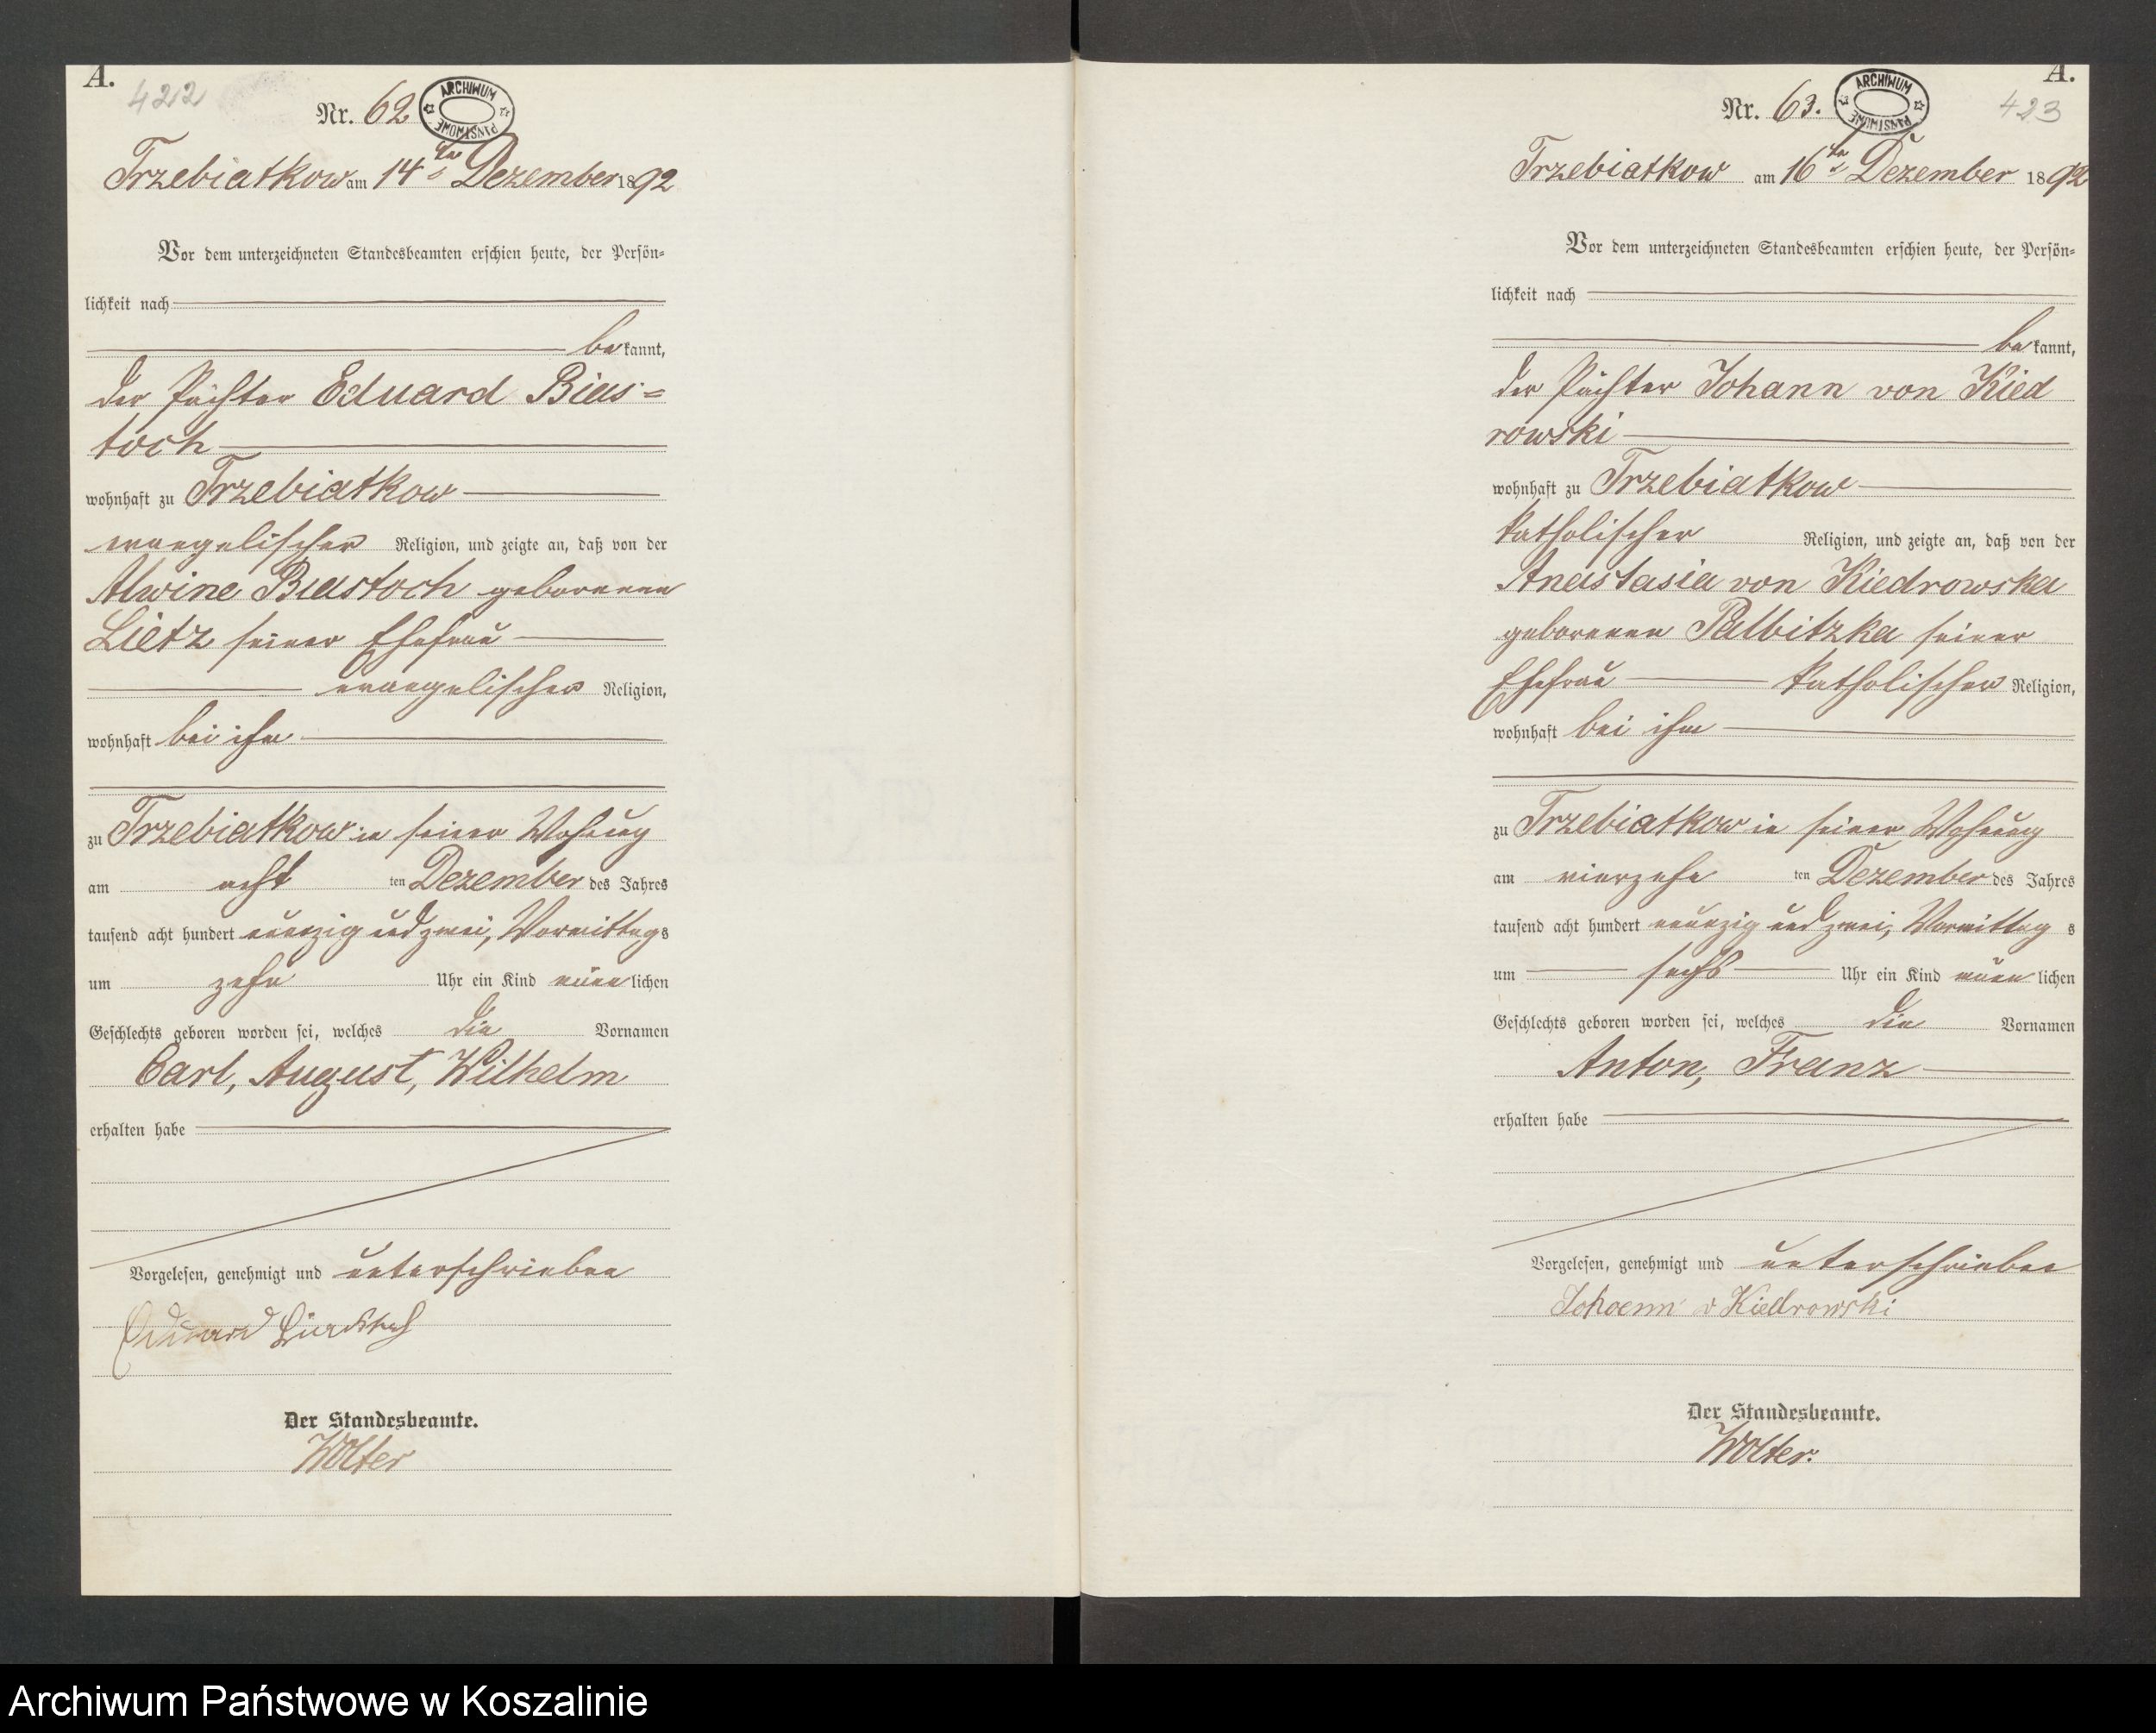 A.
422
Nr. 62
ARCHIWUM PAŃSTWOWE
Trzebiatkow am 14ten Dezember 1892
Vor dem unterzeichneten Standesbeamten erschien heute, der Persön-
lichkeit nach
bekannt,
der Pächter Eduard Bias-
toch
wohnhaft zu Trzebiatkow
evangelischer Religion, und zeigte an, daß von der
Alwine Biastoch geborenen
Lietz seiner Ehefrau
evangelischer Religion,
wohnhaft bei ihm
zu Trzebiatkow in seiner Wohnung
am acht ten Dezember des Jahres
tausend acht hundert neunzig und zwei, Vormittags
um zehn Uhr ein Kind männlichen
Geschlechts geboren worden sei, welches die Vornamen
Carl, August, Wilhelm
erhalten habe
Vorgelesen, genehmigt und unterschrieben
Eduard Biastoch
Der Standesbeamte.
Wolter
A.
423
Nr. 63.
ARCHIWUM PAŃSTWOWE
Trzebiatkow am 16ten Dezember 1892
Vor dem unterzeichneten Standesbeamten erschien heute, der Persön-
lichkeit nach
bekannt,
der Pächter Johann von Kied
rowski
wohnhaft zu Trzebiatkow
katholischer Religion, und zeigte an, daß von der
Anastasia von Kiedrowska
geborenen Palbitzka seiner
Ehefrau katholischer Religion,
wohnhaft bei ihm
zu Trzebiatkow in seiner Wohnung
am vierzehn ten Dezember des Jahres
tausend acht hundert neunzig und zwei, Vormittag s
um sechs Uhr ein Kind männ lichen
Geschlechts geboren worden sei, welches die Vornamen
Anton, Franz
erhalten habe
Vorgelesen, genehmigt und unterschrieben
Johann v Kiedrowski
Der Standesbeamte.
Wolter.
Archiwum Państwowe w Koszalinie